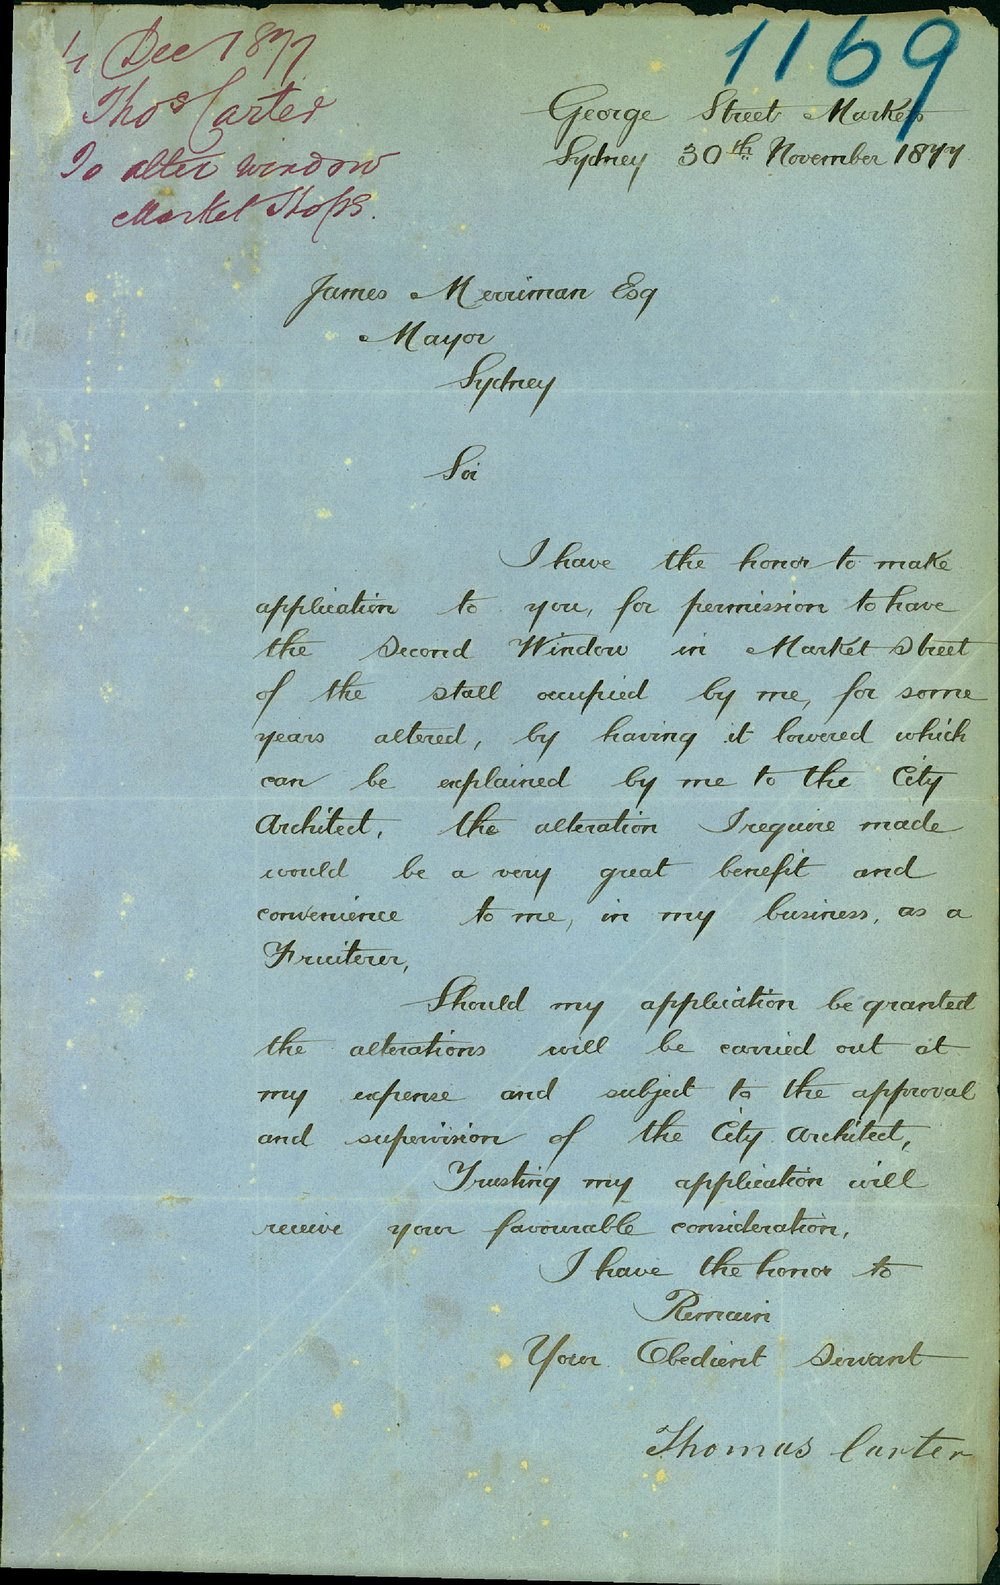 1169
4 Dec 1877
Thos Carter
To alter window
Market Shops.
George Street Markets
Sydney 30th November 1877
James Merriman Esq
Mayor
Sydney
Sir
I have the honor to make
application to you, for permission to have
the second Window in Market street
of the stall occupied by me, for some
years altered, by having it lowered which
can be explained by me to the City
Architect, the alteration I require made
would be a very great benefit and
convenience to me, in my business, as a
Fruiterer,
Should my application be granted
the alterations will be carried out at
my expense and subject to the approval
and supervision of the City Architect,
Trusting my application will
receive your favourable consideration,
I have the honor to
Remain
Your Obedient Servant
Thomas Carter